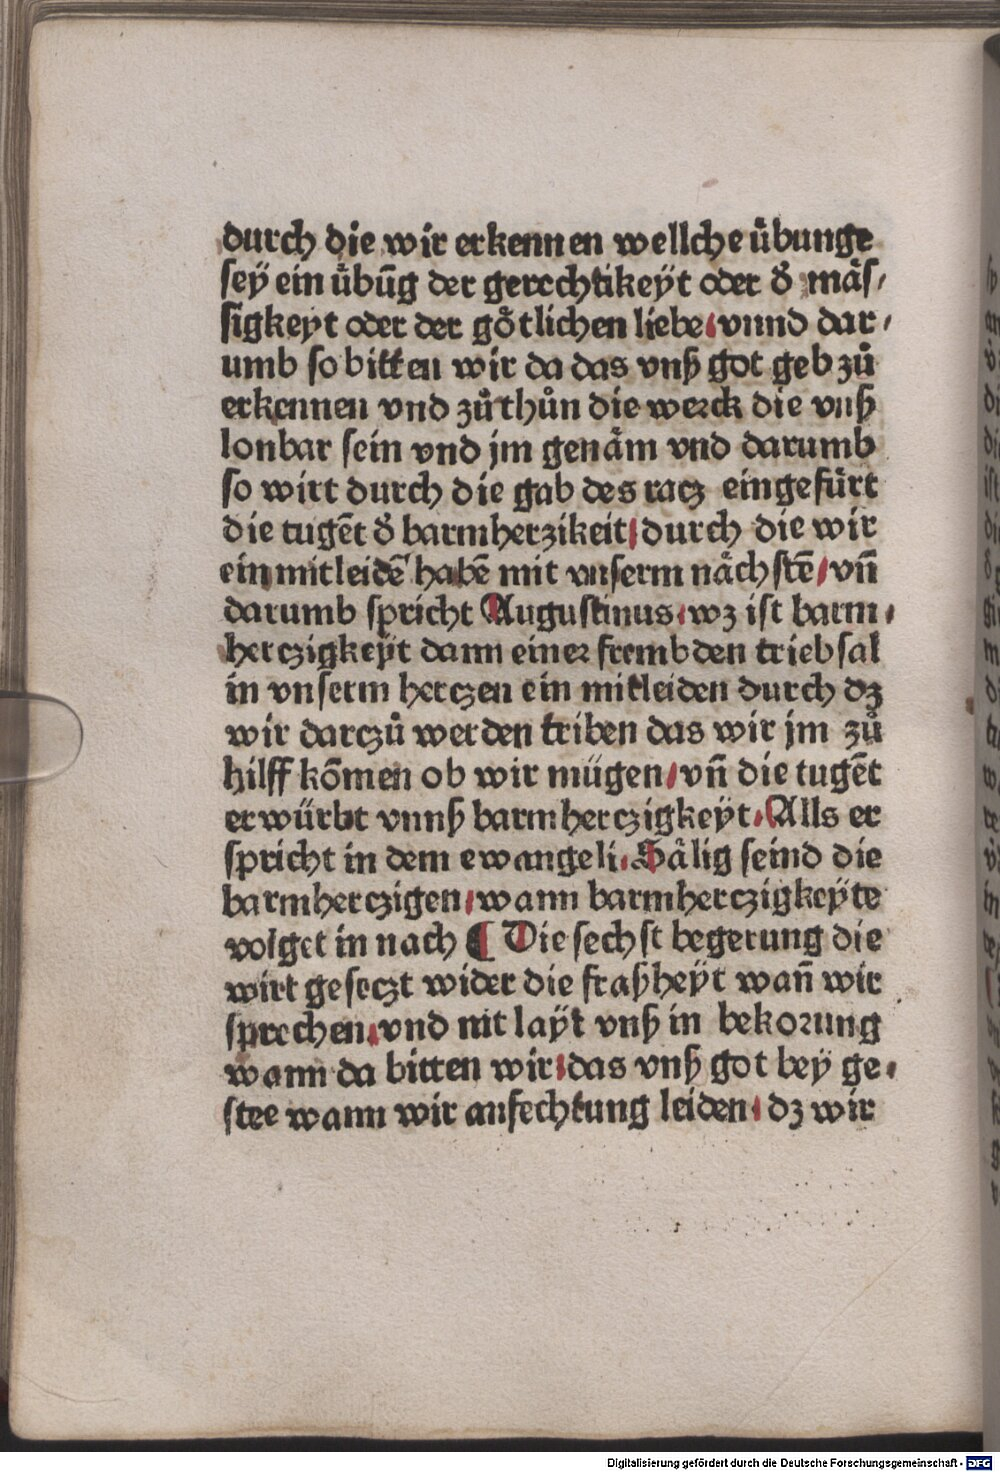 durch die wir erkennen wellche übunge
sey ein übūg der gerechtikeyt oder d̉ mäs/
sigkeyt oder der götlichen liebe/ vnnd dar/
umb so bitten wir da das vnß got geb zů
erkennen vnd zů thůn die werck die vnß
lonbar sein vnd jm genäm vnd darumb
so wirt durch die gab des racz eingefürt
die tugēt d̉ barmherzikeit/ durch die wir
ein mitleidē habē mit vnserm nächstē/ vn̄
darumb spricht Augustinus/ wz ist barm/
herczigkeÿt dann einer frembden triebsal
in vnserm herczen ein mitleiden durch dz
wir darczů werden triben das wir jm zů
hilff kōmen ob wir mügen/ vn̄ die tugēt
erwürbt vnnß barmherczigkeÿt/ Alls er
spricht in dem ewangeli/ Sälig seind die
barmherczigen/ wann barmherczigkeÿte
volget in nach ¶ Die sechst begerung die
wirt geseczt wider die fraßheÿt wan̄ wir
sprechen/ vnd nit laÿt vnß in bekorung
wann da bitten wir/ das vnß got beÿ ge/
stee wann wir anfechtung leiden/ dz wir
Digitalisierung gefördert durch die Deutsche Forschungsgemeinschaft - DFG